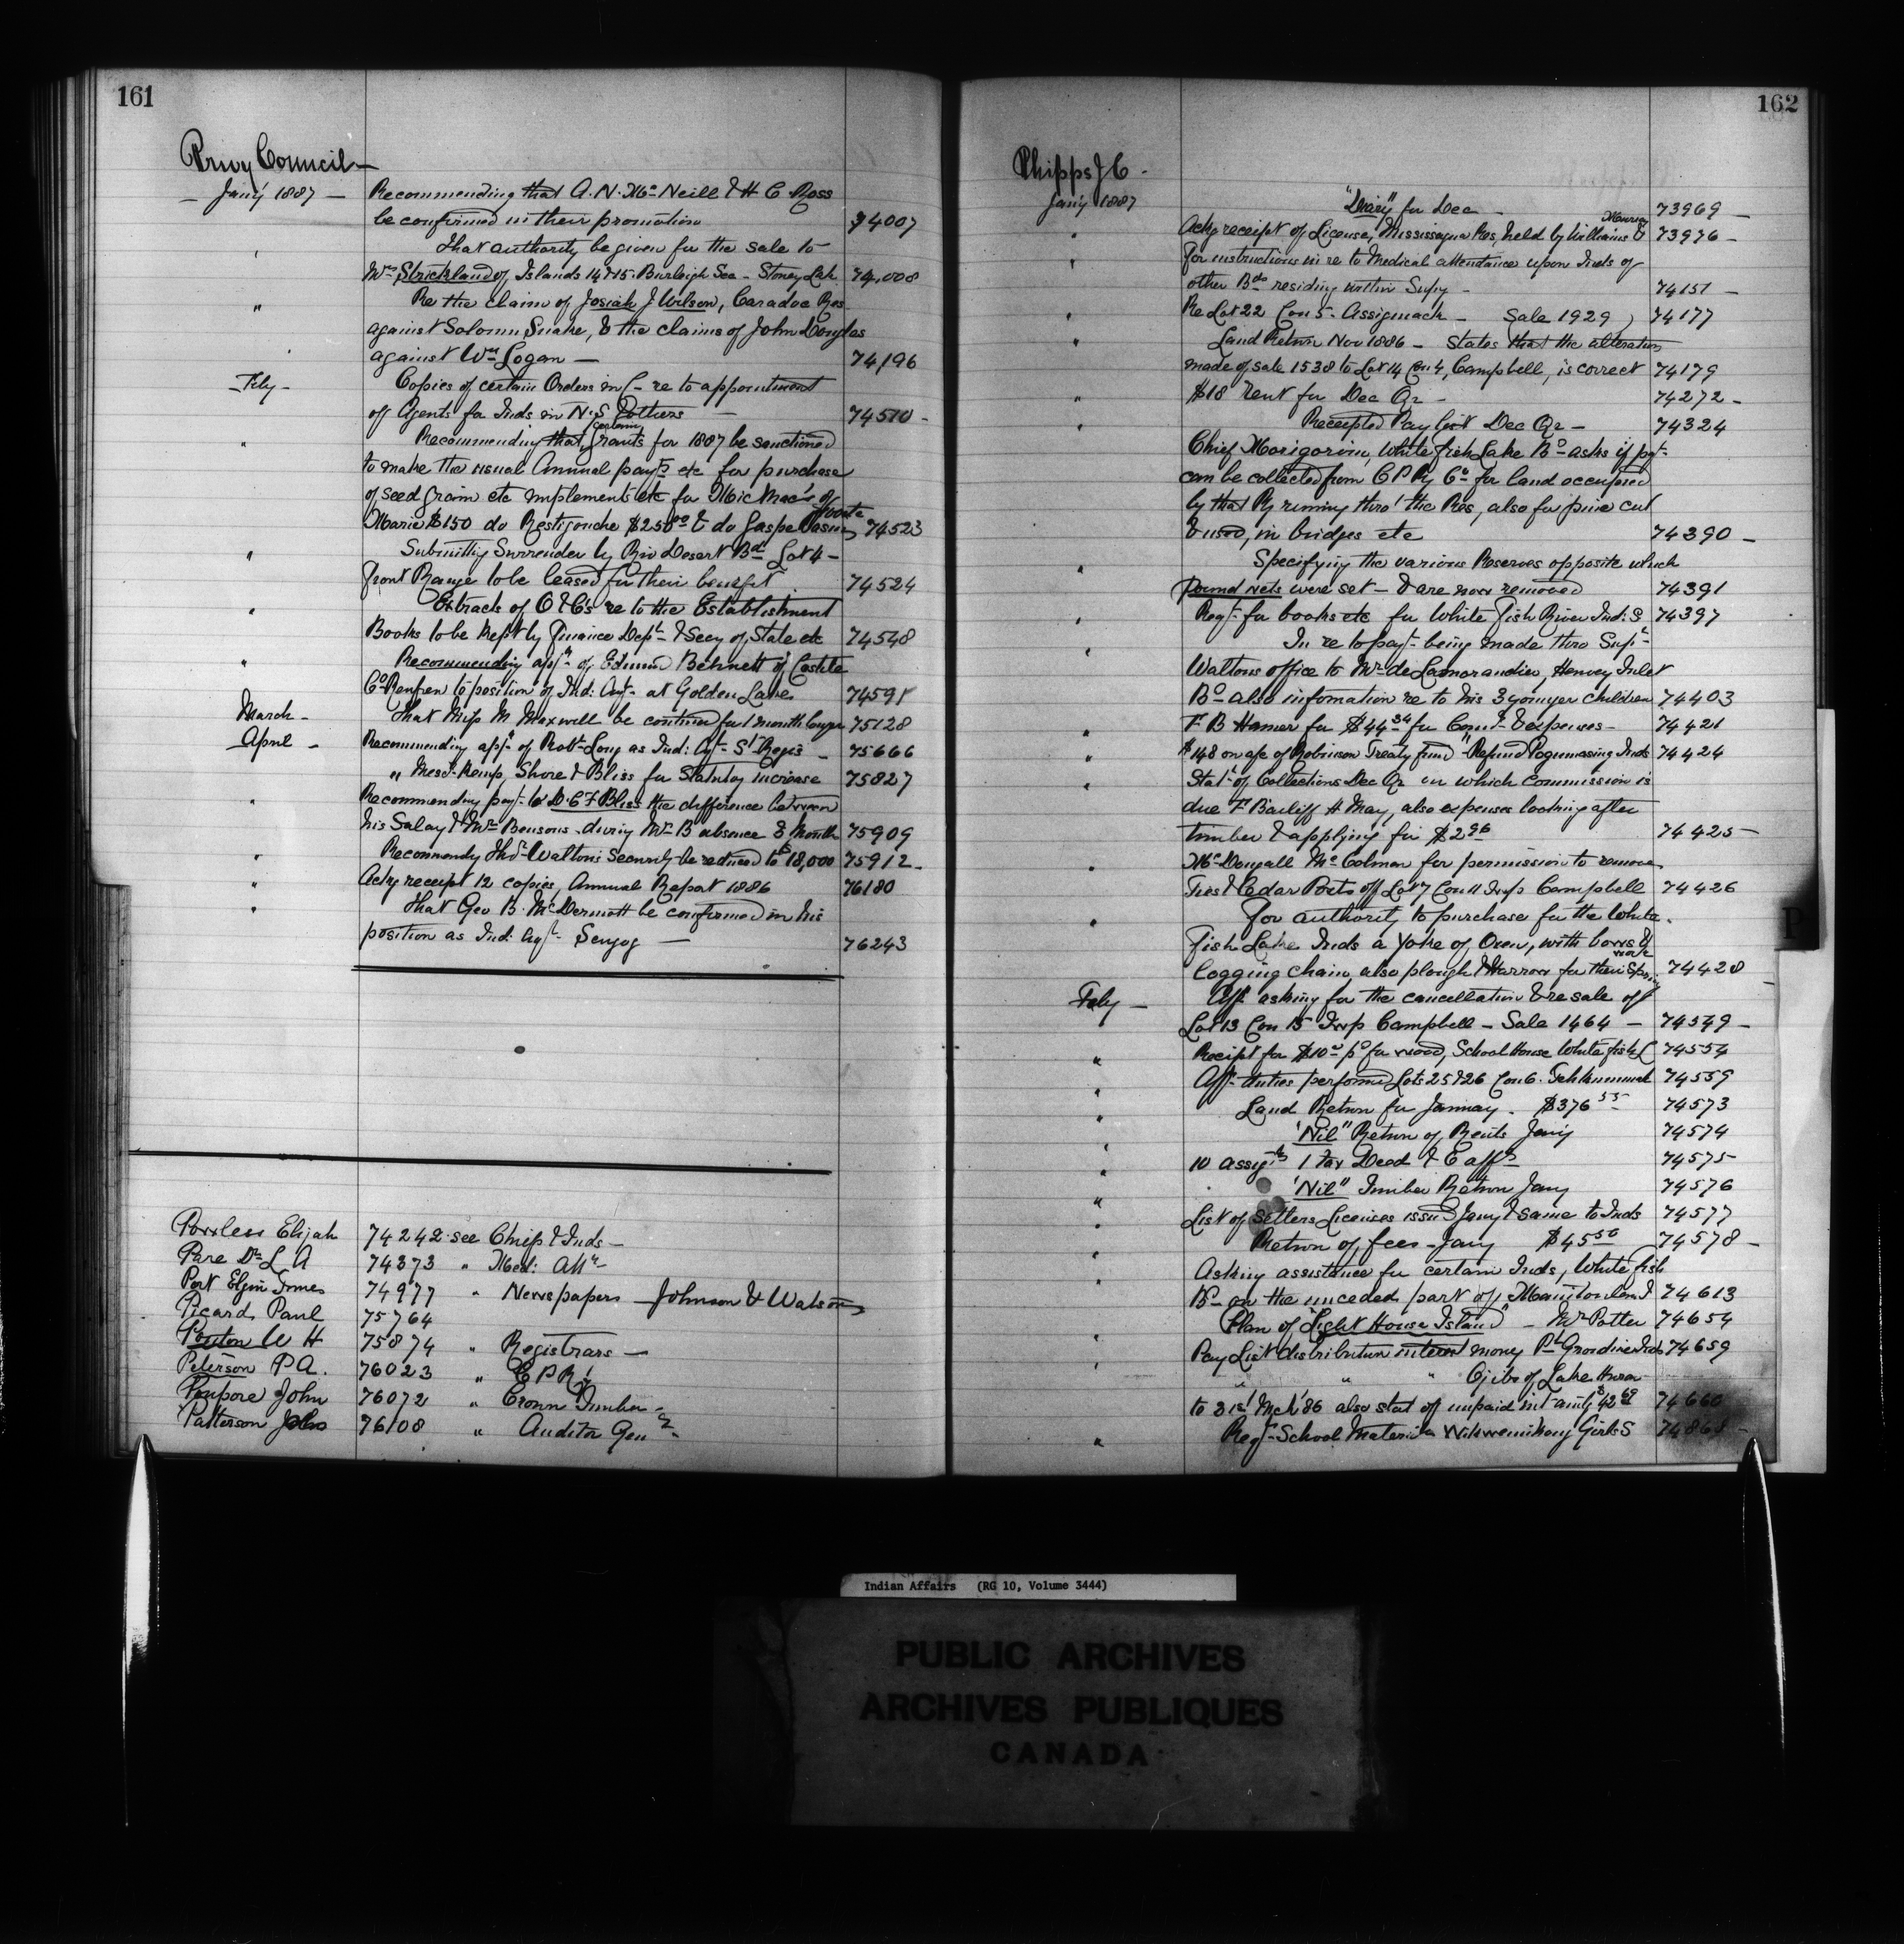 161
Privy Council —
— Jan'y 1887 — Recommending that A. N. Mc Neill & H C Ross
be confirmed in their promotion 74007
" That authority be given for the sale to
Mrs Strickland of Islands 14 & 15 Burleigh Sec - Stoney Lake 74,008
" Re the claim of Josiah J Wilson, Caradoc Res
against Solomn Snake, & the claims of John Douglas
against Wm Logan — 74,196
— Feby — Copies of certain Orders in C - re to appointment
of Agents for Inds in N.S & others — 74510 -
" Recommending that certain grants for 1887 be sanctioned
to make the usual Annual payts etc for purchase
of seed grain etc implements etc for Mic Mac's of
Marie $150 do Restigouche $250.00 & do Gaspe 74523
" Submitting Surrender by Riv Desert Bd Lot 4 -
front Range to be leased for their benefit 74524
" Extracts of O & C's re to the Establishment
Books to be kept by Finance Dept & Secy of State etc 74548
" Recommending appt of Edmund Bennett of Castle
Co Renfrew to position of Ind: Agt at Golden Lake 74591
March - That Miss M Maxwell be continued for 1 month longer 75128
April - Recommending appt of Robt Long as Ind: Agt St Regis - 75666
" Messrs Kemp, Shore & Bliss for Statutory increase 75827
" Recommending payt to D. C F Bliss the difference between
his Salary & Mr Bensons - during Mr B absence 8 Month 75909
" Recommendg Thos Walton's Security be reduced to $18,000 75912 -
" Ackg receipt 12 copies, Annual Report 1886 76180
" That Geo B. McDermott be confirmed in his
position as Ind: Agt 76243
Powless Elijah 74242 see Chief & Inds —
Pare Dr L A 74373 " Med: Attn
Port Elgin Times 74977 " Newspapers — Johnson & Watson
Picard Paul 75764
Pouton W H 75874 " Registrars —
Peterson P A. 76023 " C P Ry
Poupore John 76072 " Crown Timber -
Patterson John 76108 " Auditor Genl -
162
Phipps J C -
Jan'y 1887 "Diary" for Dec - 73969 —
" Ackg receipt of License, Mississagua Res, held by Williams & Murray 73976 —
" For instructions in re to Medical attendance upon Inds of
other Bds residing within Supy - 74151 —
" Re Lot 22 Con 5 - Assiginack - Sale 1929 74177
" Land Return Nov 1886 - States that the alteration
made of sale 1538 to Lot 14 Con 4, Campbell, is correct 74179
" $18 Rent for Dec Qr - 74272 -
" Receipted Pay list Dec Qr - 74324
Chief White fish Lake Bd asks if payt
can be collected from C P Ry Co for land occupied
by that Ry running thro' the Res, also for pine cut
& used, in bridges etc 74390 —
" Specifying the various Reserves opposite which
pound nets were set - & are now removed 74391
" Reqt for books etc for White fish River Ind: S 74397
" In re to payt being made thro Supt
Waltons office to Mr de Lamorandier, Henvey Inlet
Bd - also information re to his 3 younger children 74403
" F B Hamer for $44.34 for Comn & expenses - 74421
" $148 on a/c of Robinson Treaty fund "Refund Pogumasing Inds 74424
" Stat of Collections Dec Qr on which Commission is
due F Bailiff H May, also expenses looking after
timber & applying for $2.96 74425 —
" McDougall Mc Colman for permission to remove
Ties & Cedar Posts off Lot 7 Con 11 Twp Campbell 74426
" For authority to purchase for the White
fish Lake Inds a Yoke of Oxen, with bows &
logging chain, also plough & Harrow for their Spring work 74428
Feby — Afft asking for the cancellation & re sale of
Lot 13 Con 15 Twp Campbell - Sale 1464 — 74549 —
" Receipt for $10 pd for wood, School House White fish L 74554
" Afft duties performed Lots 25 & 26 Con 6. Tehkummah 74559
" Land Return for January. $376.55 74573
" "Nil" Return of Rents Jan'y 74574
" 10 Assigts 1 Tax Deed & 6 affts 74575
" "Nil" Timber Return Jany 74576
" List of Settlers Licenses issud Jany & same to Inds 74577
" Return of fees - Jany $45.50 74578 —
" Asking assistance for certain Inds, White fish
Bd on the unceded part of Manitoulin I 74613
" Plan of "Light House Island" - Mr Potter 74654
" Pay List distribution interest money Pt Grondine Inds 74659
" " " " Ojibs of Lake Huron
to 31st Mch '86 also stat of unpaid int amtg $42.69 74660
" Reqt - School Material Wikwemikong Girls S 74868 -
P
Indian Affairs (RG 10, Volume 3444)
PUBLIC ARCHIVES
ARCHIVES PUBLIQUES
CANADA